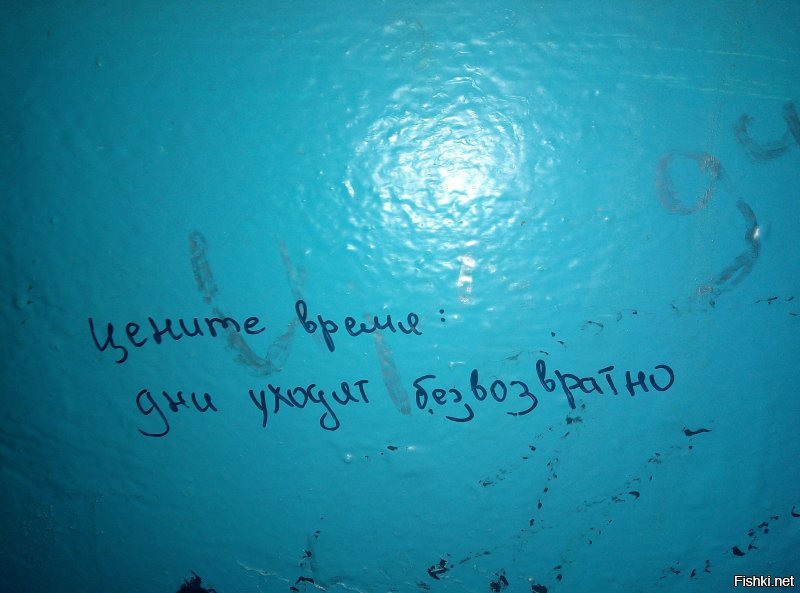 цените время:
дни уходят безвозвратно
Fishki.net